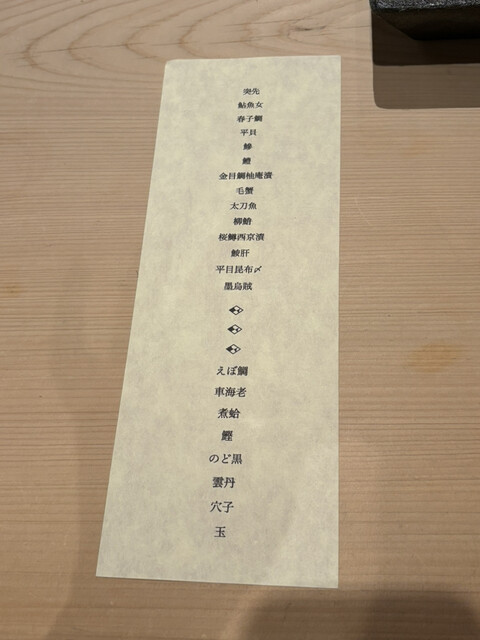 突先
鮎魚女
春子鯛
平貝
鰺
鱧
金目鯛柚庵漬
毛蟹
太刀魚
桜鱒西京漬
鮟肝
平目昆布〆
墨烏賊
えぼ鯛
車海老
煮蛤
鰹
のど黒
雲丹
穴子
玉